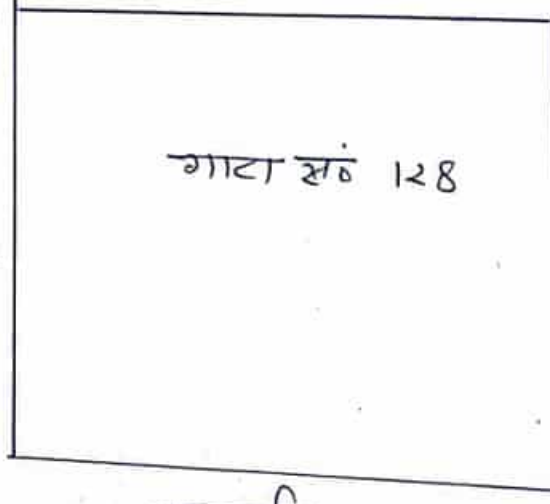 गाटा सं० 128